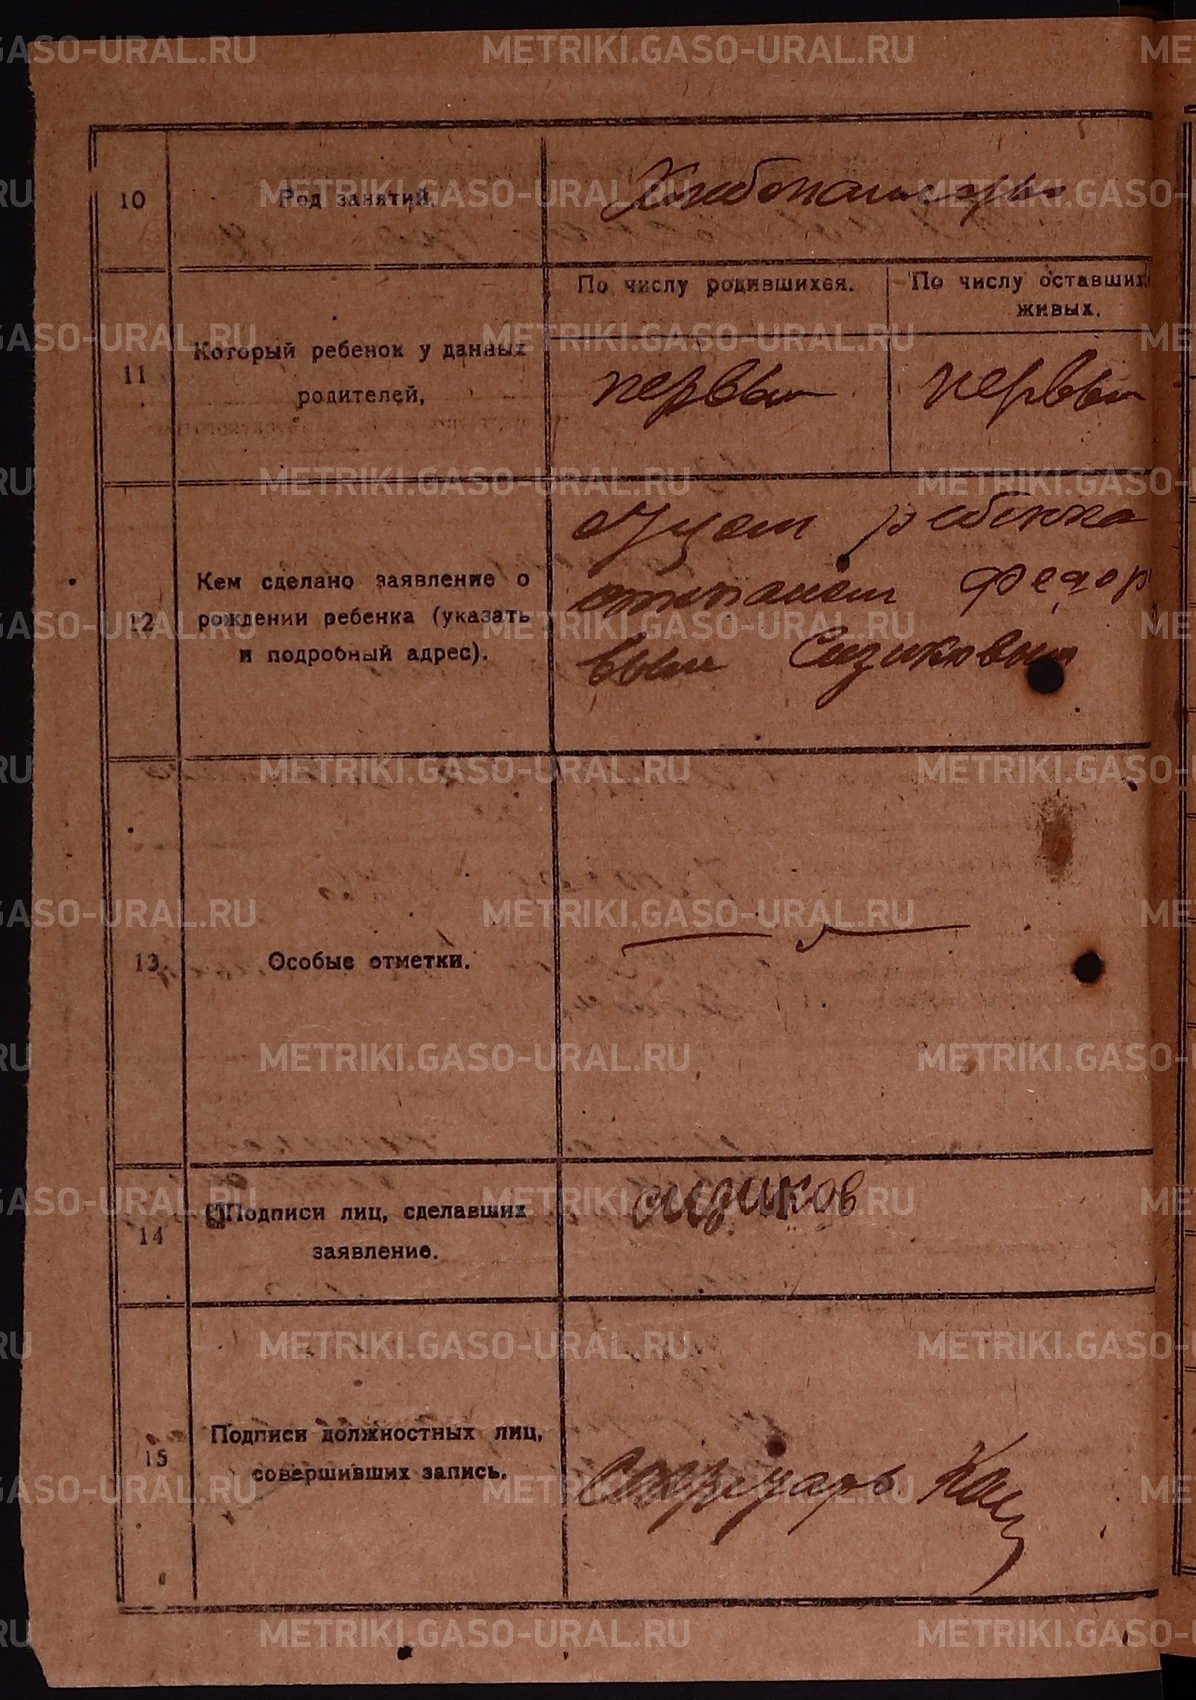 METRIKI.GASO-URAL.RU
10
Род занятий.
Хлебопашцы
11
Который ребенок у данных
родителей.
По числу родившихся.
По числу оставших
живых.
первый
первый
12
Кем сделано заявление о
рождении ребенка (указать
и подробный адрес).
Отцом ребенка
Федор
вым Сизиковым
13
Особые отметки.
14
Подписи лиц, сделавших
заявление.
Сизиков
15
Подписи должностных лиц,
совершивших запись.
Секретарь